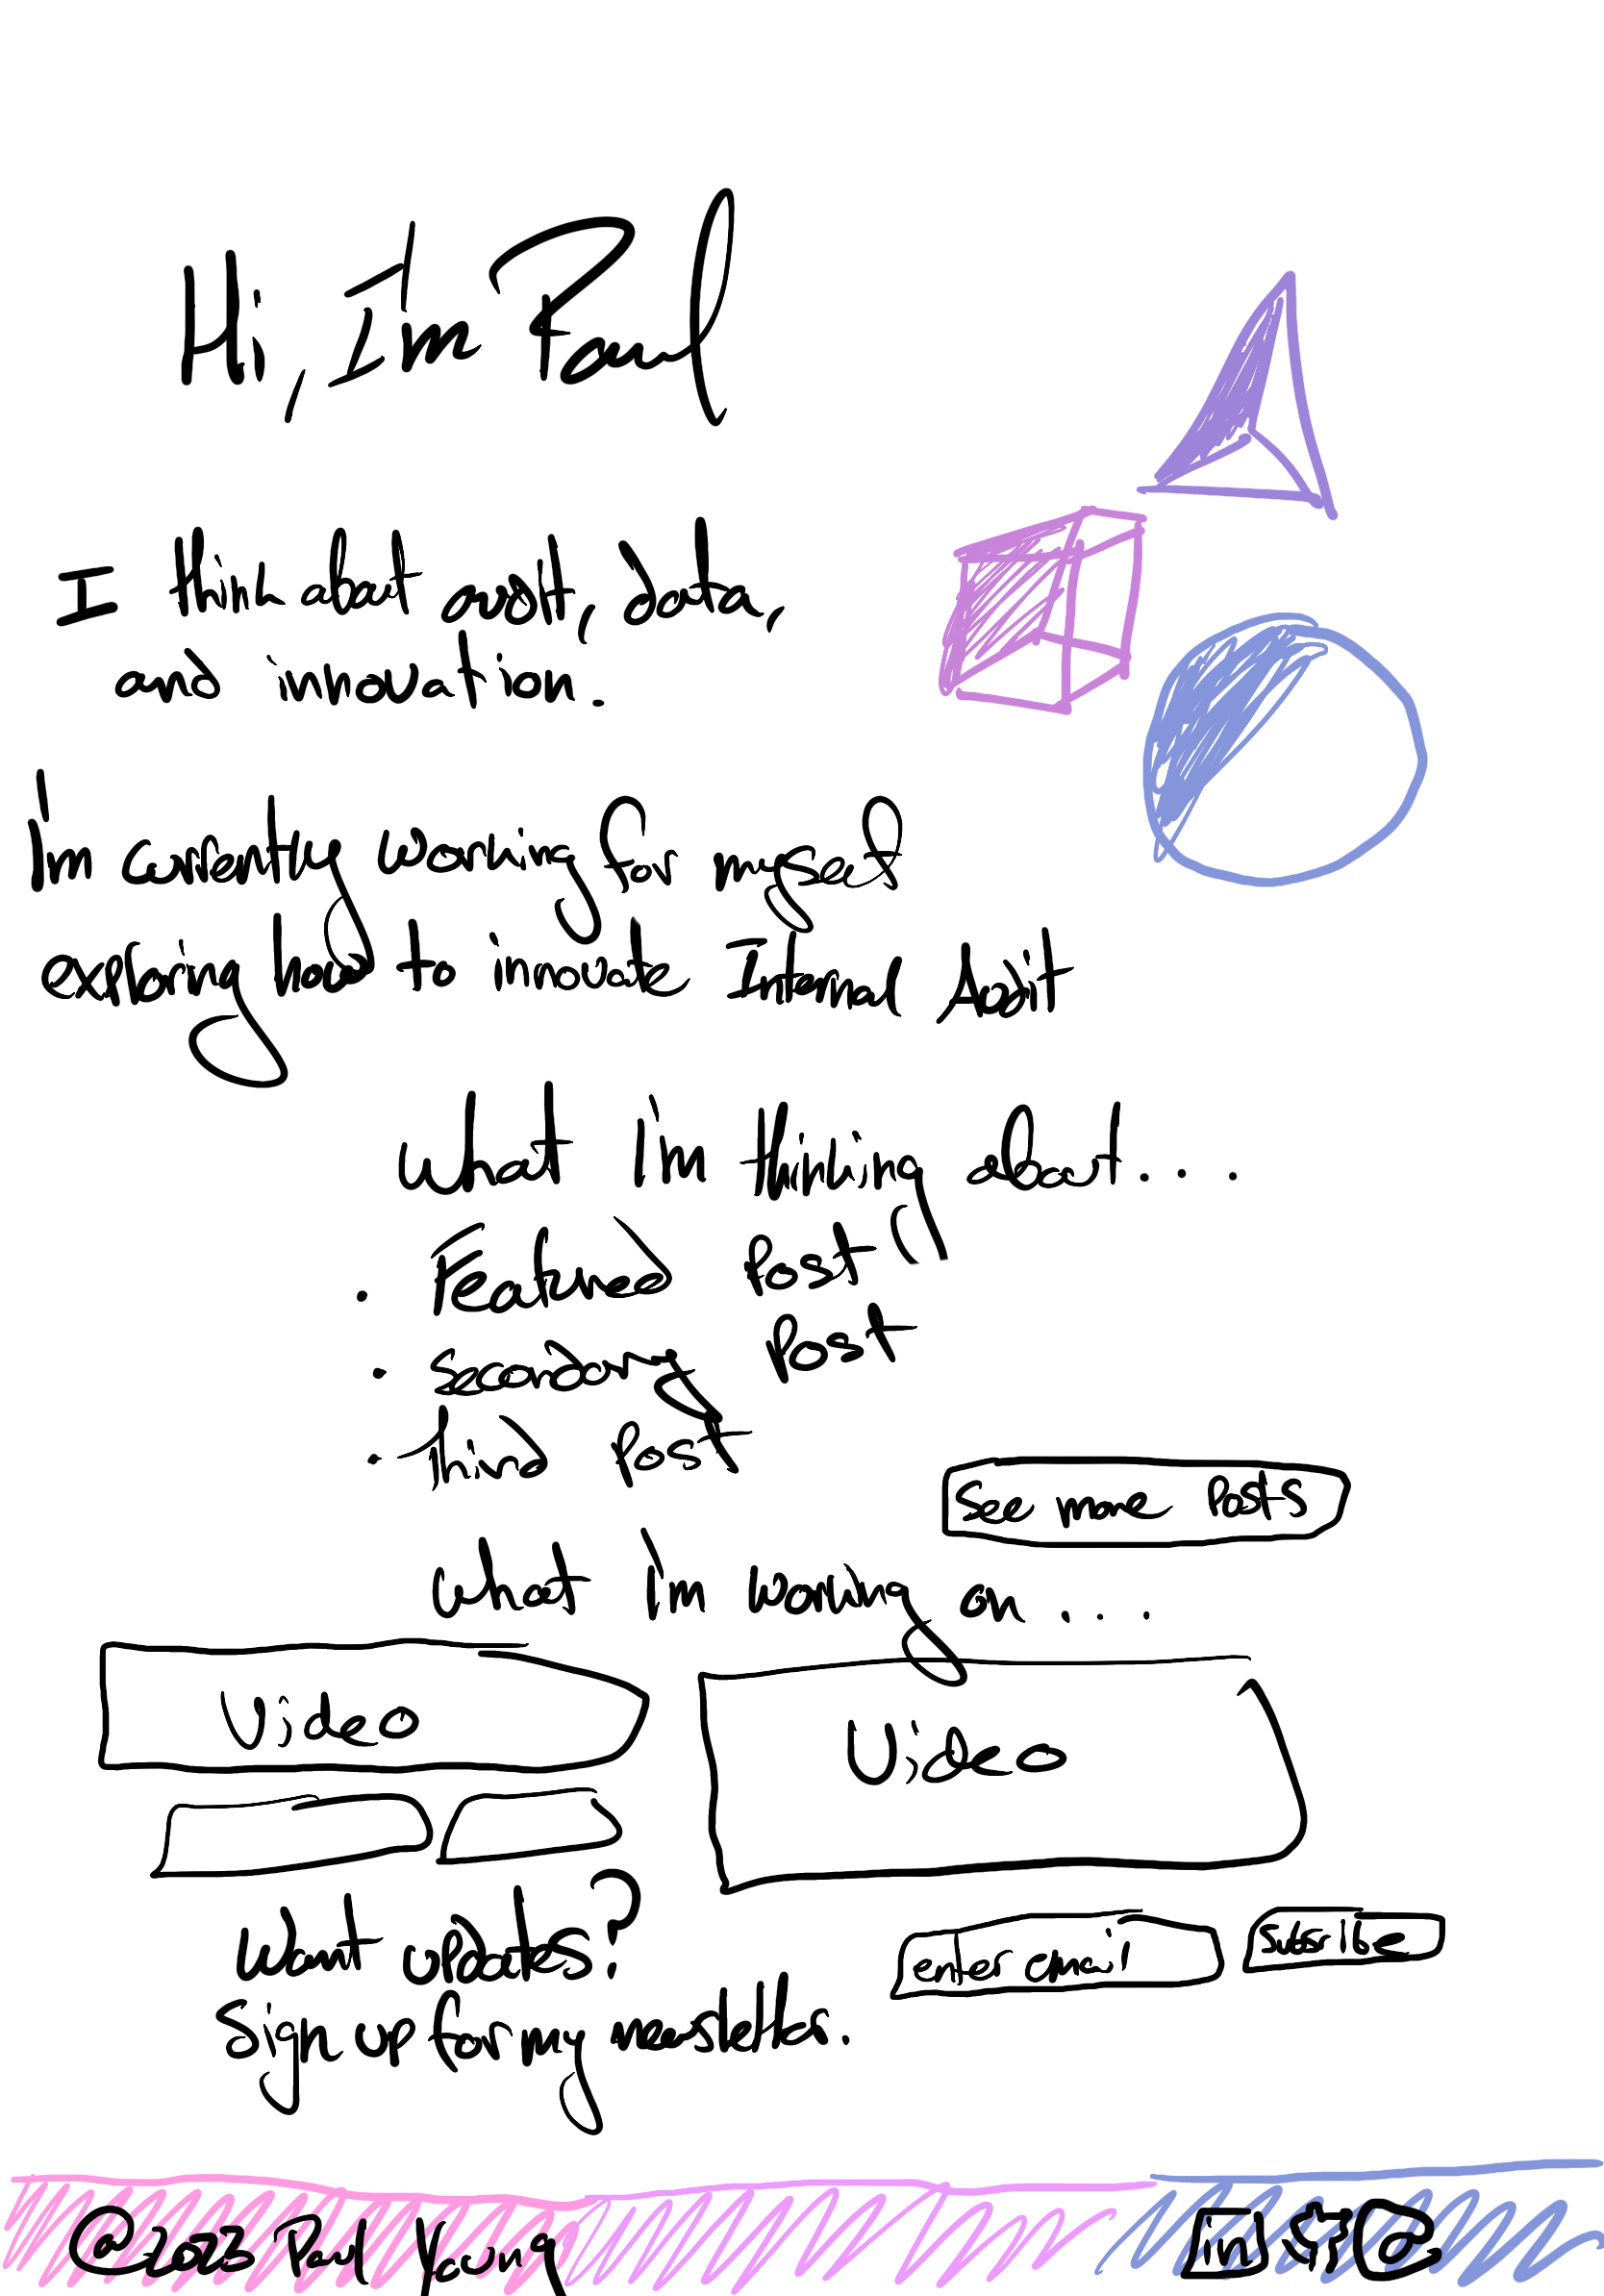 Hi, I'm Paul
I think about audit, data,
and innovation.
I'm currently working for myself
exploring how to innovate Internal Audit
What I'm thinking about...
· Featured Post
· Secondary Post
· Third Post
See more Posts
What I'm working on ...
Video
Video
Want updates?
Sign up for my newsletter.
enter email
Subsribe
@2023 Paul Young
in